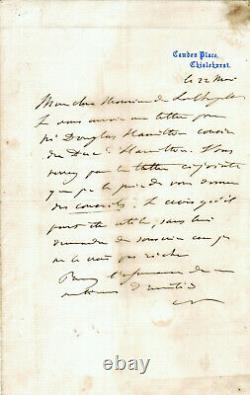 Camden Place,
Chislehurst.
le 22 Mai
Mon cher Monsieur de
Je vous envoie une lettre pour
Mr Douglas Hamilton cousin
du Duc d'Hamilton. Vous
verrez par la lettre ci jointe
que je le prie de vous donner
des conseils. Je crois qu'il
peut être utile, sans lui
demander de
ne le crois pas riche
l'assurance de mes
sentiments d'amitié
N